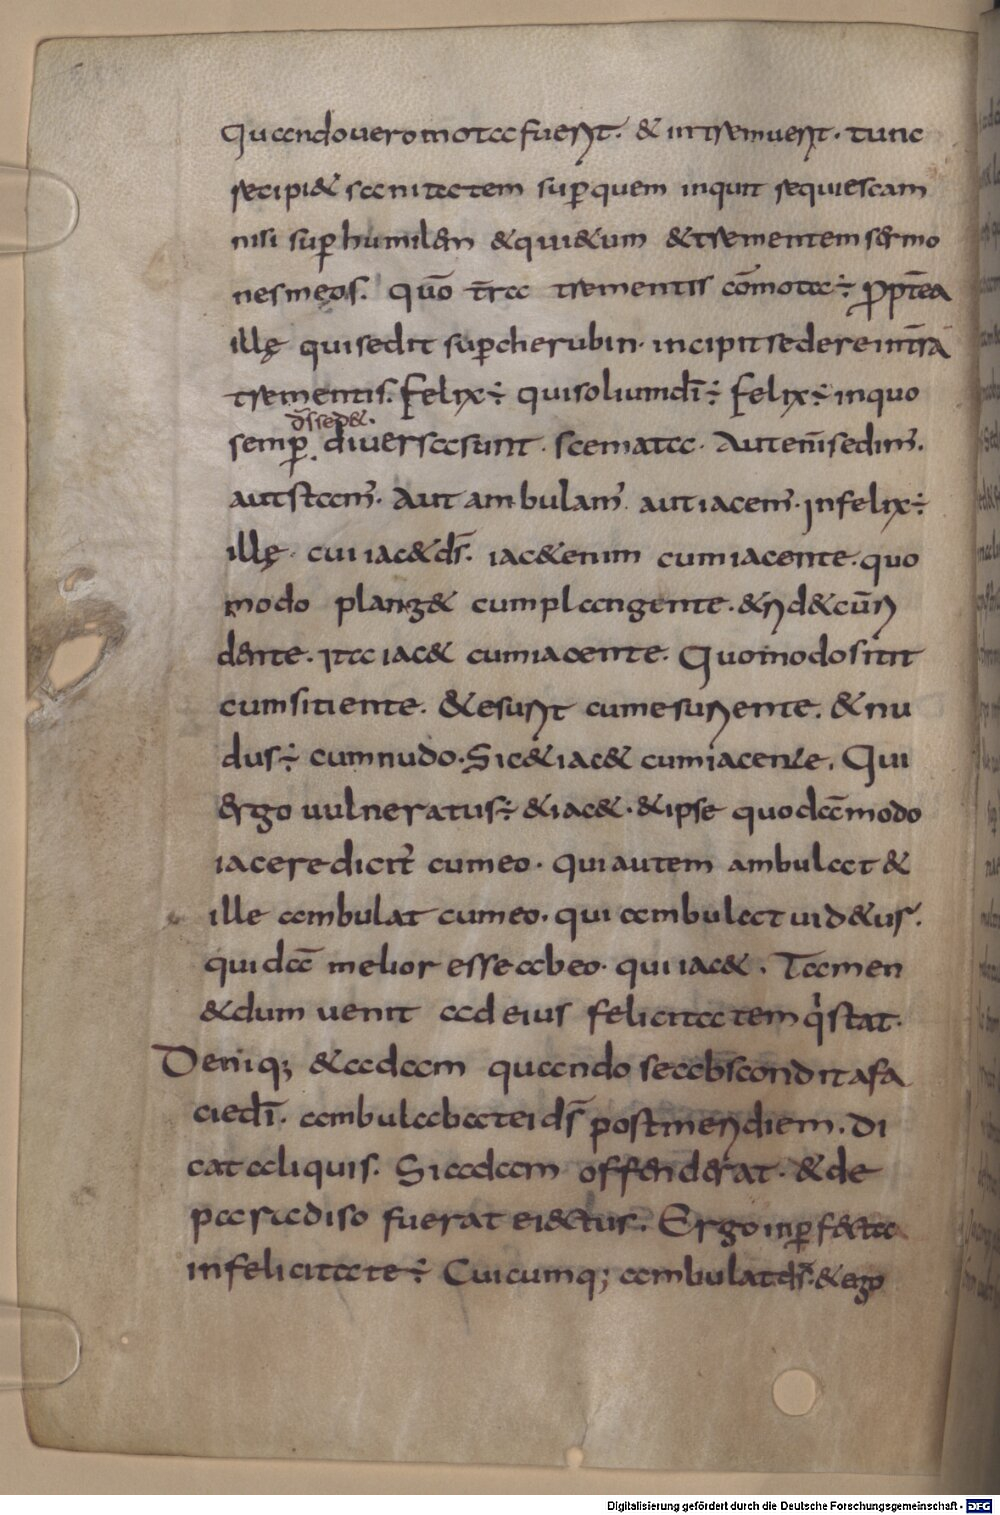 Quando uero mota fuerit. & intremuerit. tunc
recipi& sanitatem sup̄ quem inquit requiescam
nisi sup̄ humilem & qui&um & trementem sermo
nes meos. quō tr̄ra trementis cōmota ÷ ꝓpt̄ea
illę qui sedit sup̄ cherubin. incipit sedere int̄ra
trementis. Felix ÷ qui solium dī ÷ felix ÷ in quo
d̄s sed&.
semꝑ. diuersa sunt. scemata. Aut enī sedim̄.
aut stam̄. Aut ambulam̄. aut iacem̄. infelix ÷
illę. cui iac& ds̄. iac& enim cum iacente. quo
modo plang& cum plangente. & rid& cū ri
dente. ita iac& cum iacente. Quomodo sitit
cum sitiente. & esurit cum esuriente. & nu
dus ÷ cum nudo. Sic & iac& cum iacente. Qui
ergo uulneratus ÷ & iac&. & ipse quodā modo
iacere dicit̄ cum eo. qui autem ambulat &
ille ambulat cum eo. qui ambulat uid& us̄.
quidā melior esse abeo. qui iac&. Tamen
&dum uenit ad eius felicitatem q̇ stat.
Deniq; & adam quando se abscondit a fa
cie dī. ambulabat ei ds̄ post meridiem. Di
cat aliquis. Si adam offenderat. & de
paradiso fuerat eiectus. Ergo inꝑfecta
infelicitate ÷ Cuicumq; ambulat ds̄. & ego
Digitalisierung gefördert durch die Deutsche Forschungsgemeinschaft - DFG